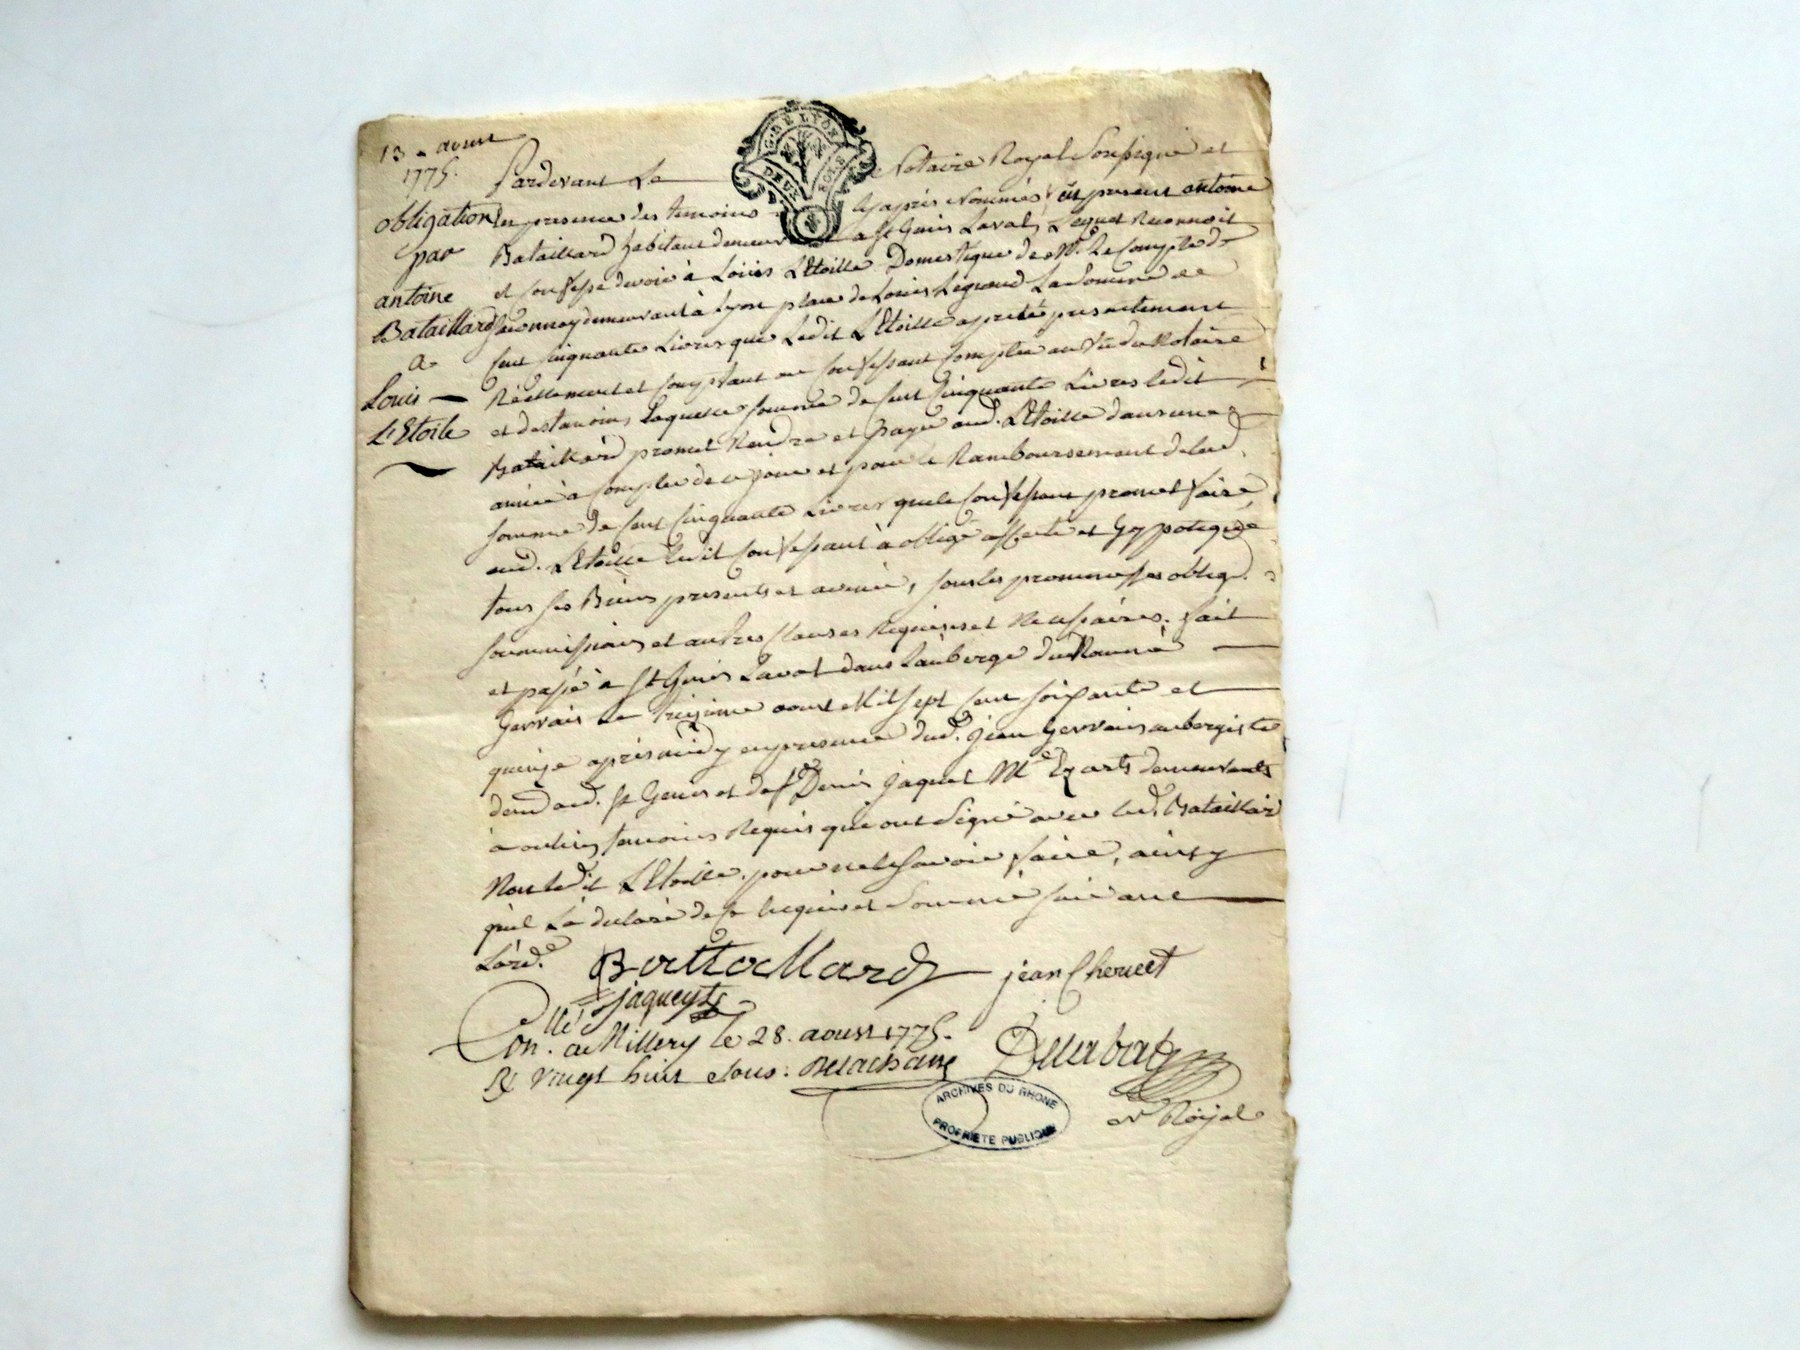 13 aoust
1775.
obligation
par
antoine
Bataillard
a
Louis
L'Etoile
G. DE LYON
DEUX SOLS
Pardevant Le Notaire Royal Soussigné et
en presence des temoins cy après Nommés fut present antoine
Bataillard habitant demeurant a St Genis Laval, Lequel Reconnoit
et confesse devoir à Loüis L'Etoille Domestique de Mr. Le Compte de
demeurant à Lyon place de Louis Legrand La Somme de
Cent Cinquante Livres que Ledit L'Etoille a preté presentement
Réellement et comptant au confessant comptée au vû du Notaire
et des temoins, Laquelle somme de Cent Cinquante Livres ledit
Bataillard promet Rendre et payer aud. L'Etoille dans une
année à compter de ce jour et pour le Ramboursement de lad.
somme de Cent Cinquante Livres que le confessant promet faire
aud. L'Etoille ledit confessant à obligé affecté et hyppotequé
tous ses Biens presents et avenir, sous les promesses oblig.
soummissions et autres Clauses Requises et Necessaires. fait
et passé à St Genis Laval dans L'auberge du Nommé
Gervais Le treizieme aoust Mil sept cent soixante et
quinze après midy en presence dud. jean Gervais aubergiste
demt aud. St Genis et de Sr Denis jaquet Me Ez arts demeurants
à oulins temoins Requis qui ont Signé avec led. Bataillard
Non ledit L'Etoille pour ne le Savoir faire, ainsy
qu'il L'a declaré de ce Requis et Sommé suivant
L'ord.ce
Battallard jean Chervet
jaquet
Con. a Millery le 28. aoust 1775.
R vingt huit sous.
N Royal
ARCHIVES DU RHONE
PROPRIETE PUBLIQUE